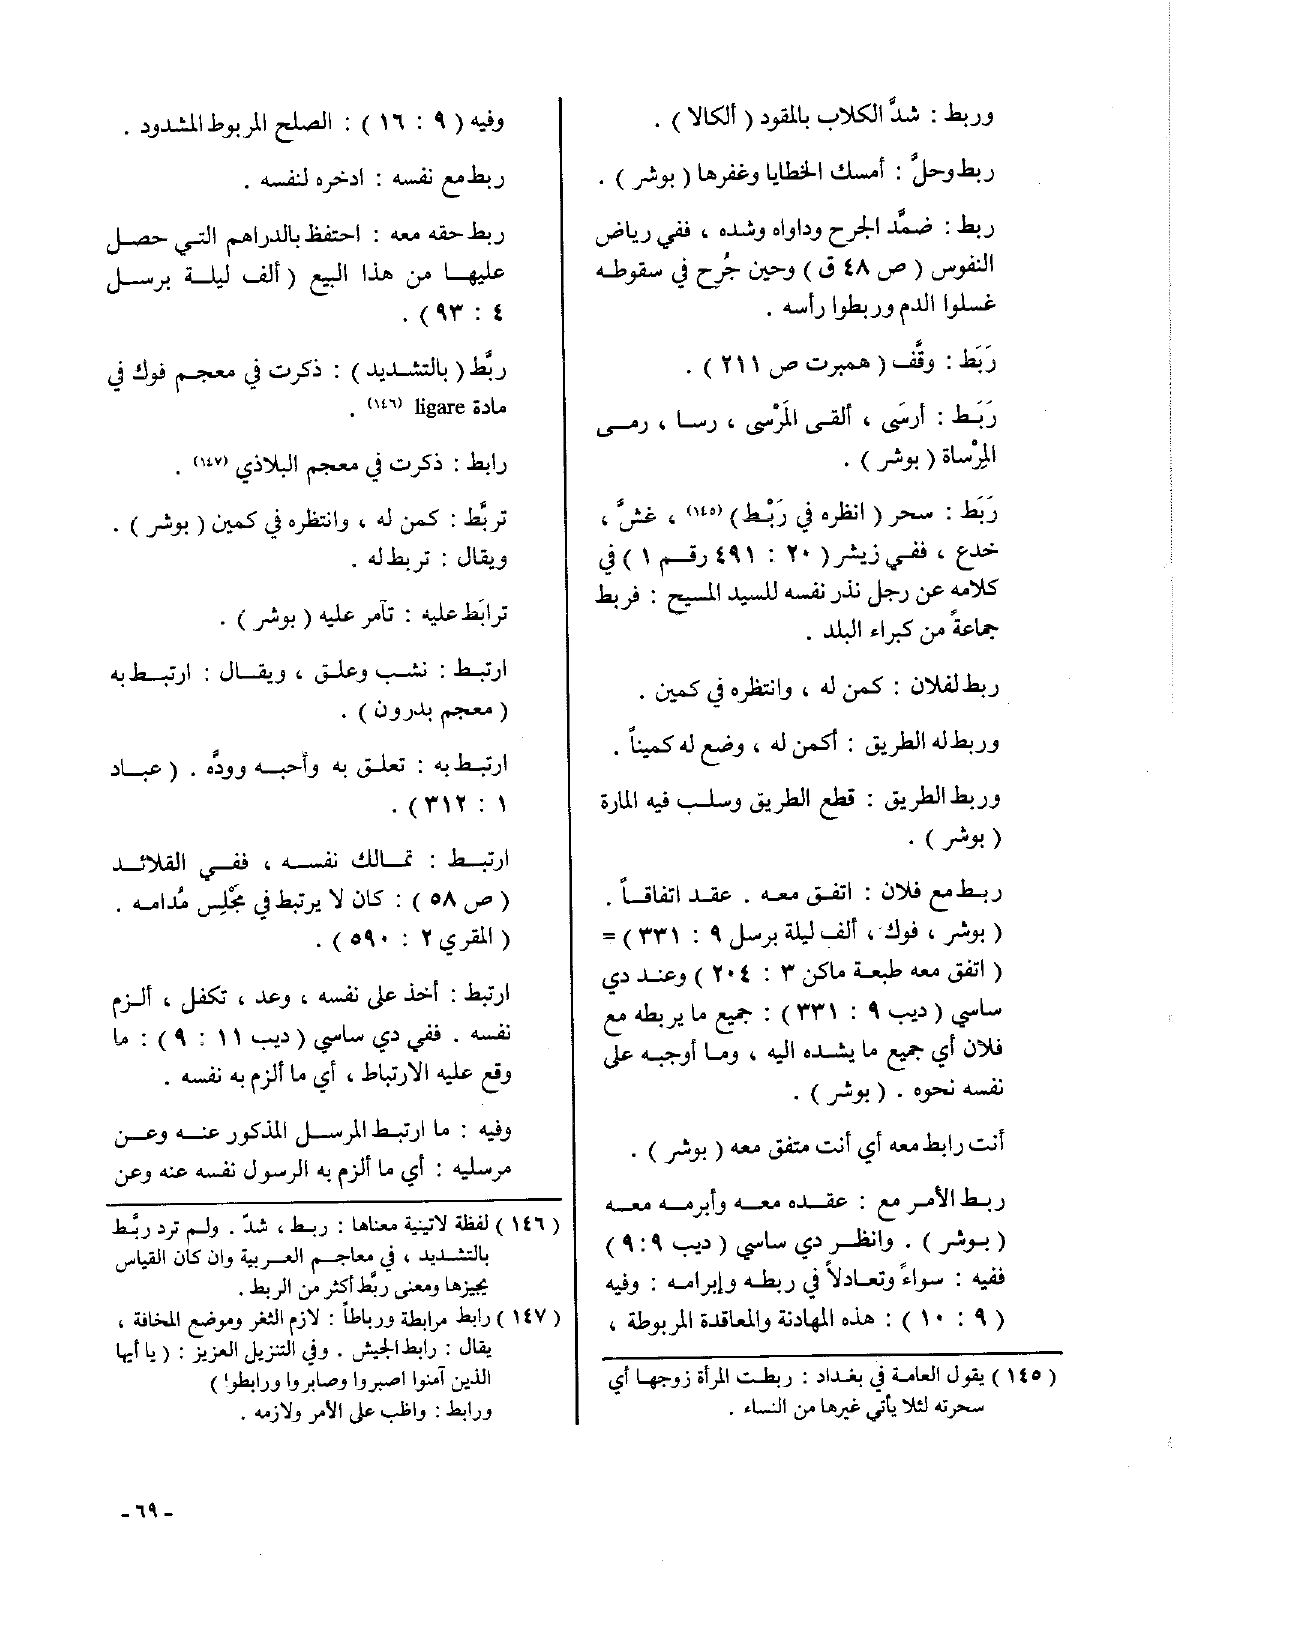 وربط : شدَّ الكلاب بالمقود ( ألكالا ) .
ربط وحلَّ : أمسك الخطايا وغفرها ( بوشر ) .
ربط : ضمَّد الجرح وداواه وشده ، ففي رياض
النفوس ( ص ٤٨ ق ) وحين جُرح في سقوطه
غسلوا الدم وربطوا رأسه .
رَبَط : وقَّف ( همبرت ص ٢١١ ) .
رَبَط : أرسَى ، ألقى المَرْسى ، رسا ، رمى
المِرْساة ( بوشر ) .
رَبَط : سحر ( انظره في رَبْط ) (١٤٥) ، غشَّ ،
خدع ، ففي زيشر ( ٢٠ : ٤٩١ رقم ١ ) في
كلامه عن رجل نذر نفسه للسيد المسيح : فربط
جماعةً من كبراء البلد .
ربط لفلان : كمن له ، وانتظره في كمين .
وربط له الطريق : أكمن له ، وضع له كميناً .
وربط الطريق : قطع الطريق وسلب فيه المارة
( بوشر ) .
ربط مع فلان : اتفق معه . عقد اتفاقاً .
( بوشر ، فوك ، ألف ليلة برسل ٩ : ٣٣١ ) =
( اتفق معه طبعة ماكن ٣ : ٢٠٤ ) وعند دي
ساسي ( ديب ٩ : ٣٣١ ) : جميع ما يربطه مع
فلان أي جميع ما يشده اليه ، وما أوجبه على
نفسه نحوه . ( بوشر ) .
أنت رابط معه أي أنت متفق معه ( بوشر ) .
ربط الأمر مع : عقده معه وأبرمه معه
( بوشر ) . وانظر دي ساسي ( ديب ٩ : ٩ )
ففيه : سواءً وتعادلاً في ربطه وإبرامه : وفيه
( ٩ : ١٠ ) : هذه المهادنة والمعاقدة المربوطة ،
( ١٤٥ ) يقول العامة في بغداد : ربطت المرأة زوجها أي
سحرته لئلا يأتي غيرها من النساء .
وفيه ( ٩ : ١٦ ) : الصلح المربوط المشدود .
ربط مع نفسه : ادخره لنفسه .
ربط حقه معه : احتفظ بالدراهم التي حصل
عليها من هذا البيع ( ألف ليلة برسل
٤ : ٩٣ ) .
ربَّط ( بالتشديد ) : ذكرت في معجم فوك في
مادة ligare (١٤٦) .
رابط : ذكرت في معجم البلاذي (١٤٧) .
تربَّط : كمن له ، وانتظره في كمين ( بوشر ) .
ويقال : تربط له .
ترابَط عليه : تآمر عليه ( بوشر ) .
ارتبط : نشب وعلق ، ويقال : ارتبط به
( معجم بدرون ) .
ارتبط به : تعلق به وأحبه وودَّه . ( عباد
١ : ٣١٢ ) .
ارتبط : تمالك نفسه ، ففي القلائد
( ص ٥٨ ) : كان لا يرتبط في مجْلِس مُدامه .
( المقري ٢ : ٥٩٠ ) .
ارتبط : أخذ على نفسه ، وعد ، تكفل ، ألزم
نفسه . ففي دي ساسي ( ديب ١١ : ٩ ) : ما
وقع عليه الارتباط ، أي ما ألزم به نفسه .
وفيه : ما ارتبط المرسل المذكور عنه وعن
مرسليه : أي ما ألزم به الرسول نفسه عنه وعن
( ١٤٦ ) لفظة لاتينية معناها : ربط ، شدّ . ولم ترد ربَّط
بالتشديد ، في معاجم العربية وان كان القياس
يجيزها ومعنى ربَّط أكثر من الربط .
( ١٤٧ ) رابط مرابطة ورباطاً : لازم الثغر وموضع المخافة ،
يقال : رابط الجيش . وفي التنزيل العزيز : ( يا أيها
الذين آمنوا اصبروا وصابروا ورابطوا )
ورابط : واظب على الأمر ولازمه .
- ٦٩ -